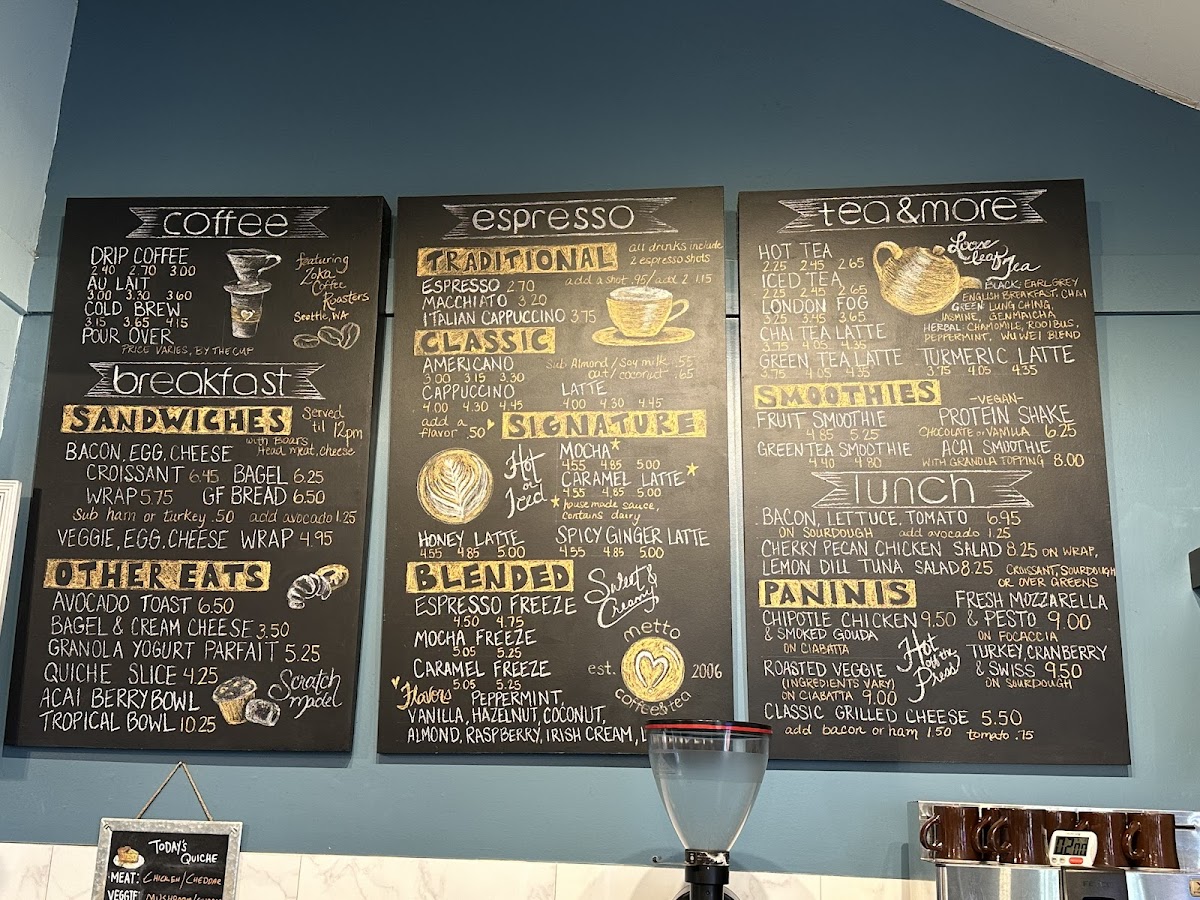 coffee
DRIP COFFEE
2.40 2.70 3.00
AU LAIT
3.00 3.30 3.60
COLD BREW
3.15 3.65 4.15
POUR OVER
PRICE VARIES, BY THE CUP
featuring
Zoka
Coffee
Roasters
Seattle, WA
breakfast
SANDWICHES
Served
til 12pm
with Boars
Head meat, cheese
BACON, EGG, CHEESE
CROISSANT 6.45 BAGEL 6.25
WRAP 5.75 GF BREAD 6.50
Sub ham or turkey .50 add avocado 1.25
VEGGIE, EGG, CHEESE WRAP 4.95
OTHER EATS
AVOCADO TOAST 6.50
BAGEL & CREAM CHEESE 3.50
GRANOLA YOGURT PARFAIT 5.25
QUICHE SLICE 4.25
ACAI BERRY BOWL
TROPICAL BOWL 10.25
Scratch
made!
espresso
TRADITIONAL
all drinks include
2 espresso shots
add a shot .95/add 2 1.15
ESPRESSO 2.70
MACCHIATO 3.20
ITALIAN CAPPUCCINO 3.75
CLASSIC
AMERICANO
3.00 3.15 3.30
Sub Almond/Soy milk .55
oat/coconut .65
CAPPUCCINO
4.00 4.30 4.45
LATTE
4.00 4.30 4.45
add a
flavor .50
SIGNATURE
Hot
or
Iced
MOCHA*
4.55 4.85 5.00
CARAMEL LATTE*
4.55 4.85 5.00
*house made sauce,
contains dairy
HONEY LATTE
4.55 4.85 5.00
SPICY GINGER LATTE
4.55 4.85 5.00
BLENDED
Sweet &
Creamy
ESPRESSO FREEZE
4.50 4.75
MOCHA FREEZE
5.05 5.25
CARAMEL FREEZE
5.05 5.25
metto
est. 2006
coffee & tea
Flavors PEPPERMINT,
VANILLA, HAZELNUT, COCONUT,
ALMOND, RASPBERRY, IRISH CREAM,
tea&more
HOT TEA
2.25 2.45 2.65
ICED TEA
2.25 2.45 2.65
LONDON FOG
3.25 3.45 3.65
CHAI TEA LATTE
3.75 4.05 4.35
GREEN TEA LATTE
3.75 4.05 4.35
Loose
Leaf Tea
BLACK: EARL GREY
ENGLISH BREAKFAST, CHAI
GREEN: LUNG CHING
JASMINE, GENMAICHA
HERBAL: CHAMOMILE, ROOIBUS,
PEPPERMINT, WU WEI BLEND
TURMERIC LATTE
3.75 4.05 4.35
SMOOTHIES
FRUIT SMOOTHIE
4.85 5.25
GREEN TEA SMOOTHIE
4.40 4.80
-VEGAN-
PROTEIN SHAKE
CHOCOLATE or VANILLA 6.25
ACAI SMOOTHIE
WITH GRANOLA TOPPING 8.00
lunch
BACON, LETTUCE, TOMATO 6.95
ON SOURDOUGH add avocado 1.25
CHERRY PECAN CHICKEN SALAD 8.25 ON WRAP,
LEMON DILL TUNA SALAD 8.25 CROISSANT, SOURDOUGH
OR OVER GREENS
PANINIS
CHIPOTLE CHICKEN 9.50
& SMOKED GOUDA
ON CIABATTA
FRESH MOZZARELLA
& PESTO 9.00
ON FOCACCIA
Hot
off the
Press
ROASTED VEGGIE
(INGREDIENTS VARY)
ON CIABATTA 9.00
TURKEY, CRANBERRY
& SWISS 9.50
ON SOURDOUGH
CLASSIC GRILLED CHEESE 5.50
add bacon or ham 1.50 tomato .75
TODAY'S
QUICHE
MEAT: CHICKEN/CHEDDAR
VEGGIE: